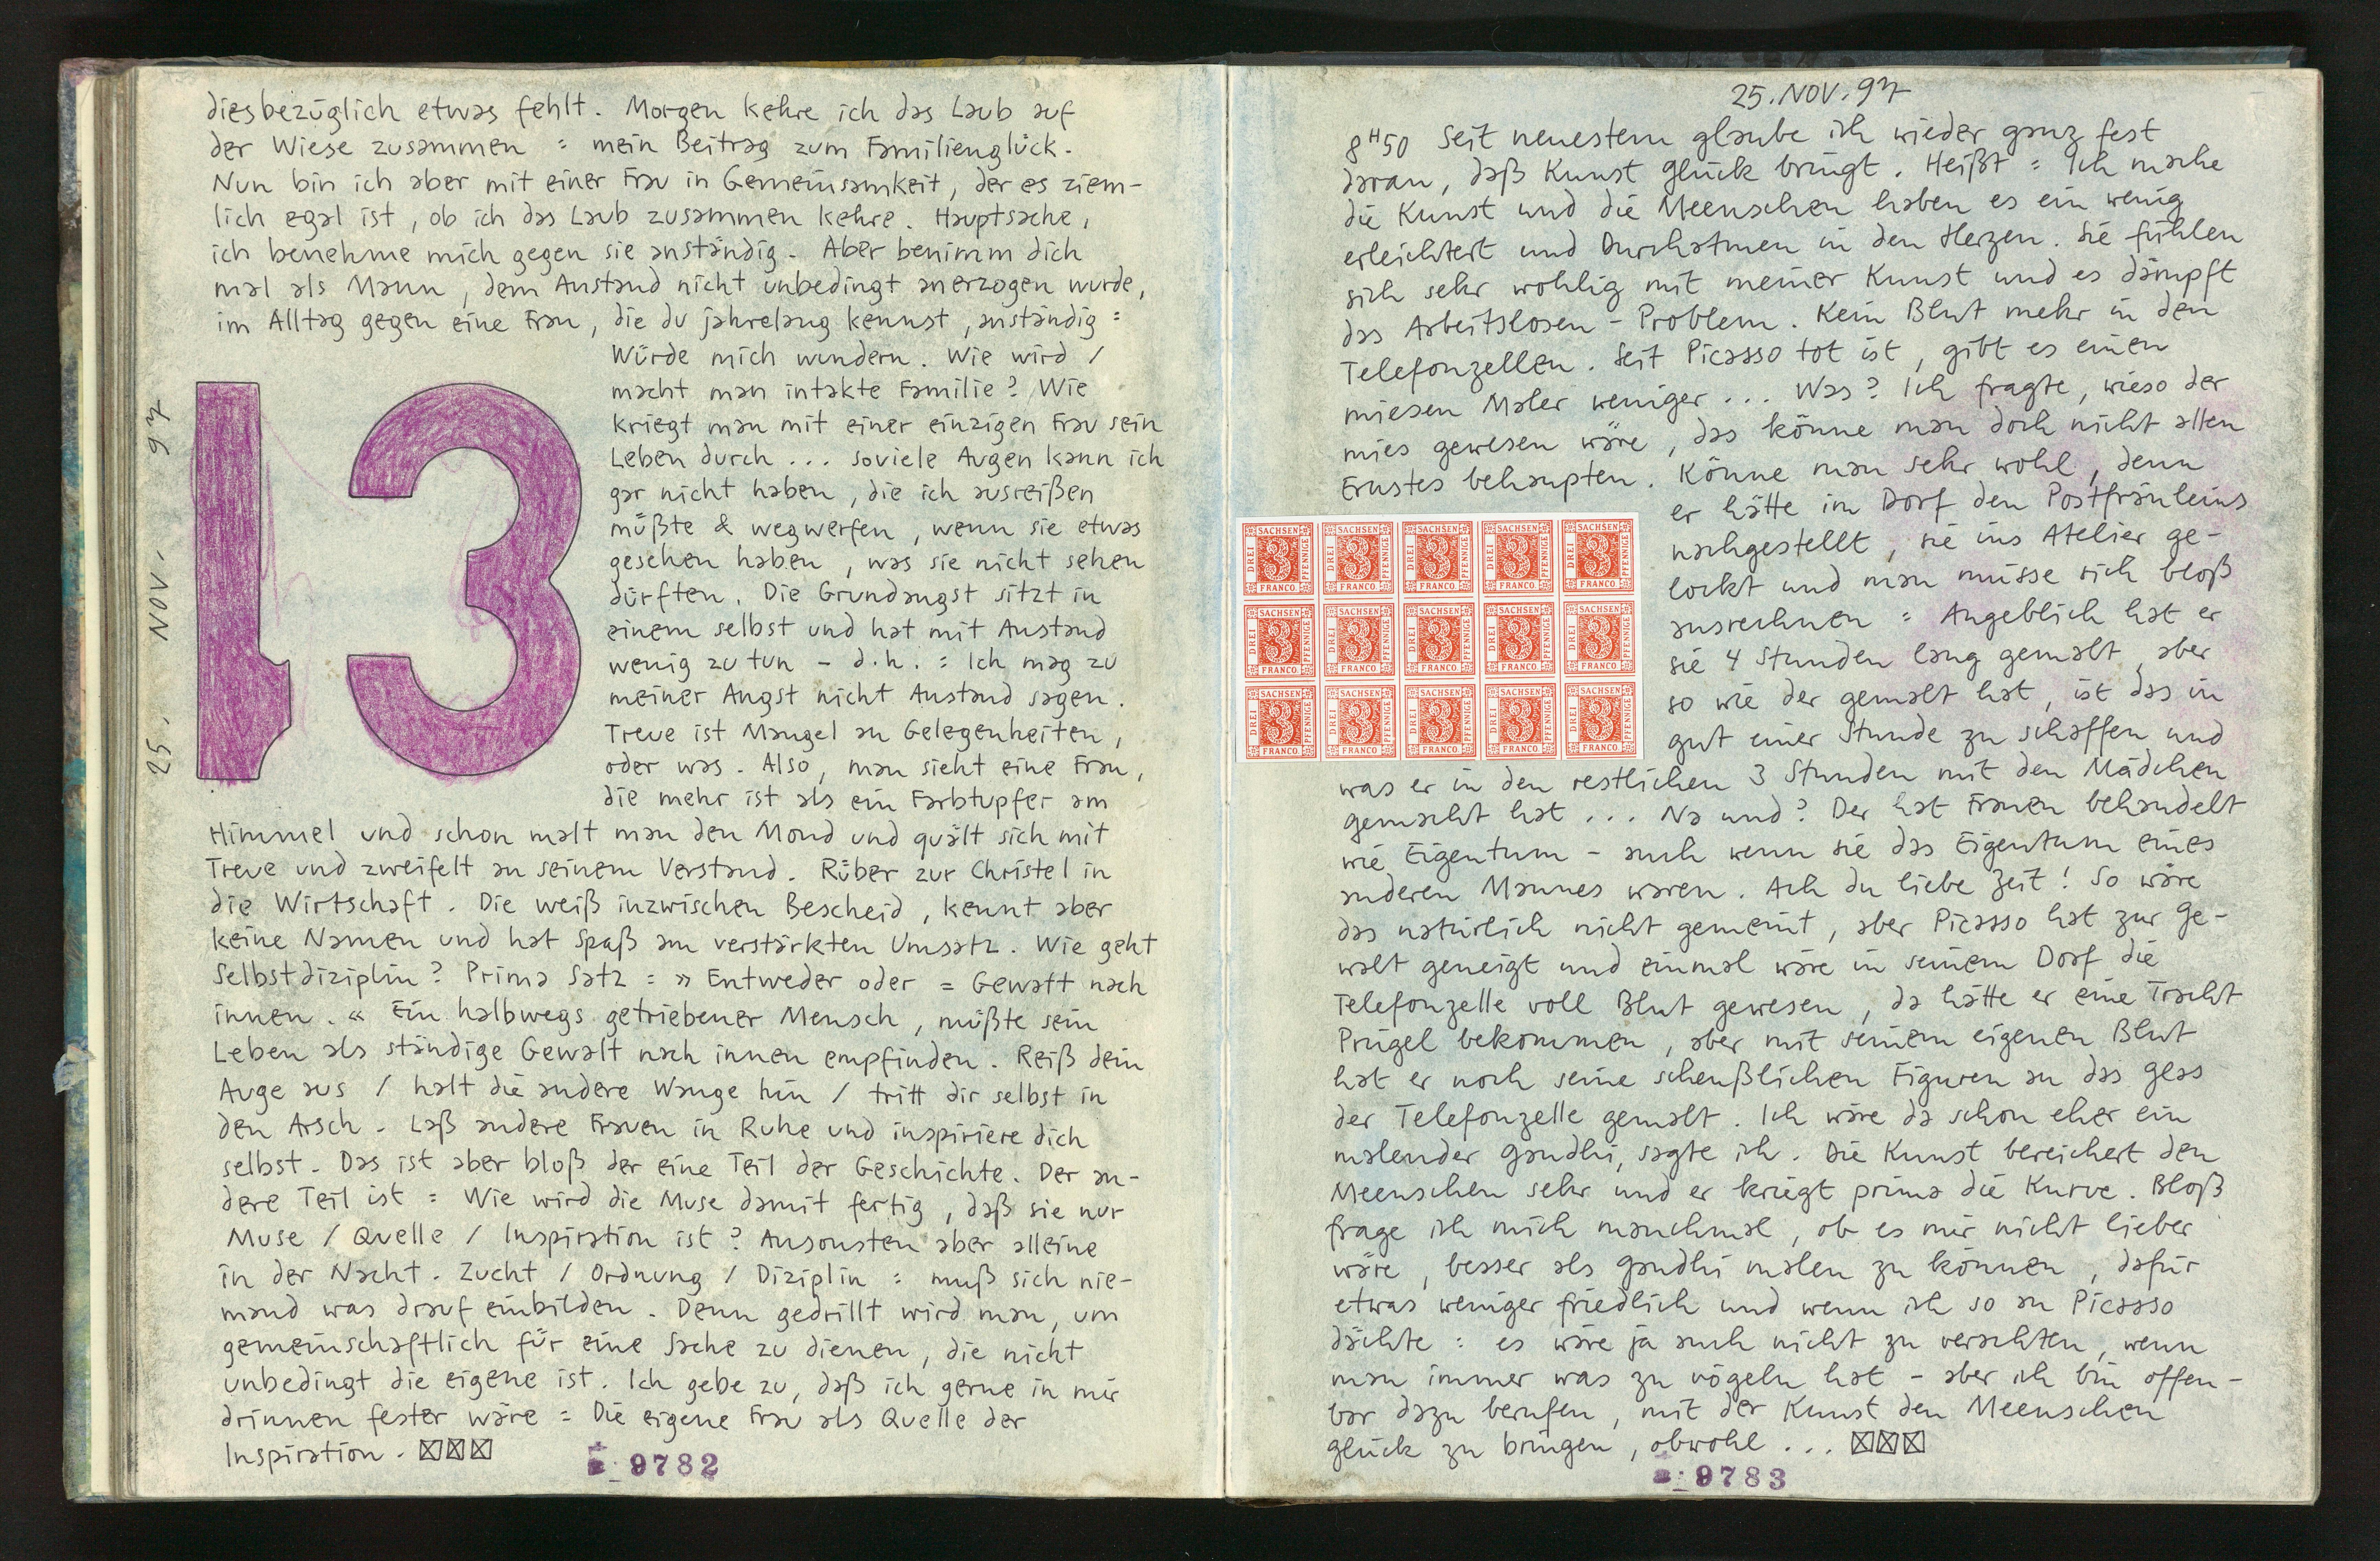 diesbezüglich etwas fehlt. Morgen kehre ich das Laub auf
der Wiese zusammen = mein Beitrag zum Familienglück.
Nun bin ich aber mit einer Frau in Gemeinsamkeit, der es ziem-
lich egal ist, ob ich das Laub zusammen kehre. Hauptsache,
ich benehme mich gegen sie anständig. Aber benimm dich
mal als Mann, dem Anstand nicht unbedingt anerzogen wurde,
im Alltag gegen eine Frau, die du jahrelang kennst, anständig =
Würde mich wundern. Wie wird /
macht man intakte Familie? Wie
kriegt man mit einer einzigen Frau sein
Leben durch... soviele Augen kann ich
gar nicht haben, die ich ausreißen
müßte & wegwerfen, wenn sie etwas
gesehen haben, was sie nicht sehen
dürften. Die Grundangst sitzt in
einem selbst und hat mit Anstand
wenig zu tun - d.h. = Ich mag zu
meiner Angst nicht Anstand sagen.
Treue ist Mangel an Gelegenheiten,
oder was. Also, man sieht eine Frau,
die mehr ist als ein Farbtupfer am
Himmel und schon malt man den Mond und quält sich mit
Treue und zweifelt an seinem Verstand. Rüber zur Christel in
die Wirtschaft. Die weiß inzwischen Bescheid, kennt aber
keine Namen und hat Spaß am verstärkten Umsatz. Wie geht
Selbstdiziplin? Prima Satz = » Entweder oder = Gewalt nach
innen. « Ein halbwegs getriebener Mensch, müßte sein
Leben als ständige Gewalt nach innen empfinden. Reiß dein
Auge aus / halt die andere Wange hin / tritt dir selbst in
den Arsch. Laß andere Frauen in Ruhe und inspiriere dich
selbst. Das ist aber bloß der eine Teil der Geschichte. Der an-
dere Teil ist = Wie wird die Muse damit fertig, daß sie nur
Muse / Quelle / Inspiration ist? Ansonsten aber alleine
in der Nacht. Zucht / Ordnung / Diziplin = muß sich nie-
mand was drauf einbilden. Denn gedrillt wird man, um
gemeinschaftlich für eine Sache zu dienen, die nicht
unbedingt die eigene ist. Ich gebe zu, daß ich gerne in mir
drinnen fester wäre = Die eigene Frau als Quelle der
Inspiration. ☒☒☒
25. NOV. 97
13
9782
25. NOV. 97
8 H 50 Seit neuestem glaube ich wieder ganz fest
daran, daß Kunst Glück bringt. Heißt = Ich mache
die Kunst und die Meenschen haben es ein wenig
erleichtert und Durchatmen in den Herzen. Sie fühlen
sich sehr wohlig mit meiner Kunst und es dämpft
das Arbeitslosen-Problem. Kein Blut mehr in den
Telefonzellen. Seit Picasso tot ist, gibt es einen
miesen Maler weniger... Was? Ich fragte, wieso der
mies gewesen wäre, das könne man doch nicht allen
Ernstes behaupten. Könne man sehr wohl, denn
er hätte im Dorf den Postfräuleins
nachgestellt, sie ins Atelier ge-
lockt und man müsse sich bloß
ausrechnen = Angeblich hat er
sie 4 Stunden lang gemalt, aber
so wie der gemalt hat, ist das in
gut einer Stunde zu schaffen und
was er in den restlichen 3 Stunden mit den Mädchen
gemacht hat... Na und? Der hat Frauen behandelt
wie Eigentum - auch wenn sie das Eigentum eines
anderen Mannes waren. Ach du liebe Zeit! So wäre
das natürlich nicht gemeint, aber Picasso hat zur Ge-
walt geneigt und einmal wäre in seinem Dorf die
Telefonzelle voll Blut gewesen, da hätte er eine Tracht
Prügel bekommen, aber mit seinem eigenen Blut
hat er noch seine scheußlichen Figuren an das Glas
der Telefonzelle gemalt. Ich wäre da schon eher ein
malender Gandhi, sagte ich. Die Kunst bereichert den
Meenschen sehr und er kriegt prima die Kurve. Bloß
frage ich mich manchmal, ob es mir nicht lieber
wäre, besser als Gandhi malen zu können, dafür
etwas weniger friedlich und wenn ich so an Picasso
dächte = es wäre ja auch nicht zu verachten, wenn
man immer was zu vögeln hat - aber ich bin offen-
bar dazu berufen, mit der Kunst den Meenschen
Glück zu bringen, obwohl... ☒☒☒
SACHSEN DREI 3 PFENNIGE FRANCO SACHSEN DREI 3 PFENNIGE FRANCO SACHSEN DREI 3 PFENNIGE FRANCO SACHSEN DREI 3 PFENNIGE FRANCO SACHSEN DREI 3 PFENNIGE FRANCO
SACHSEN DREI 3 PFENNIGE FRANCO SACHSEN DREI 3 PFENNIGE FRANCO SACHSEN DREI 3 PFENNIGE FRANCO SACHSEN DREI 3 PFENNIGE FRANCO SACHSEN DREI 3 PFENNIGE FRANCO
SACHSEN DREI 3 PFENNIGE FRANCO SACHSEN DREI 3 PFENNIGE FRANCO SACHSEN DREI 3 PFENNIGE FRANCO SACHSEN DREI 3 PFENNIGE FRANCO SACHSEN DREI 3 PFENNIGE FRANCO
9783